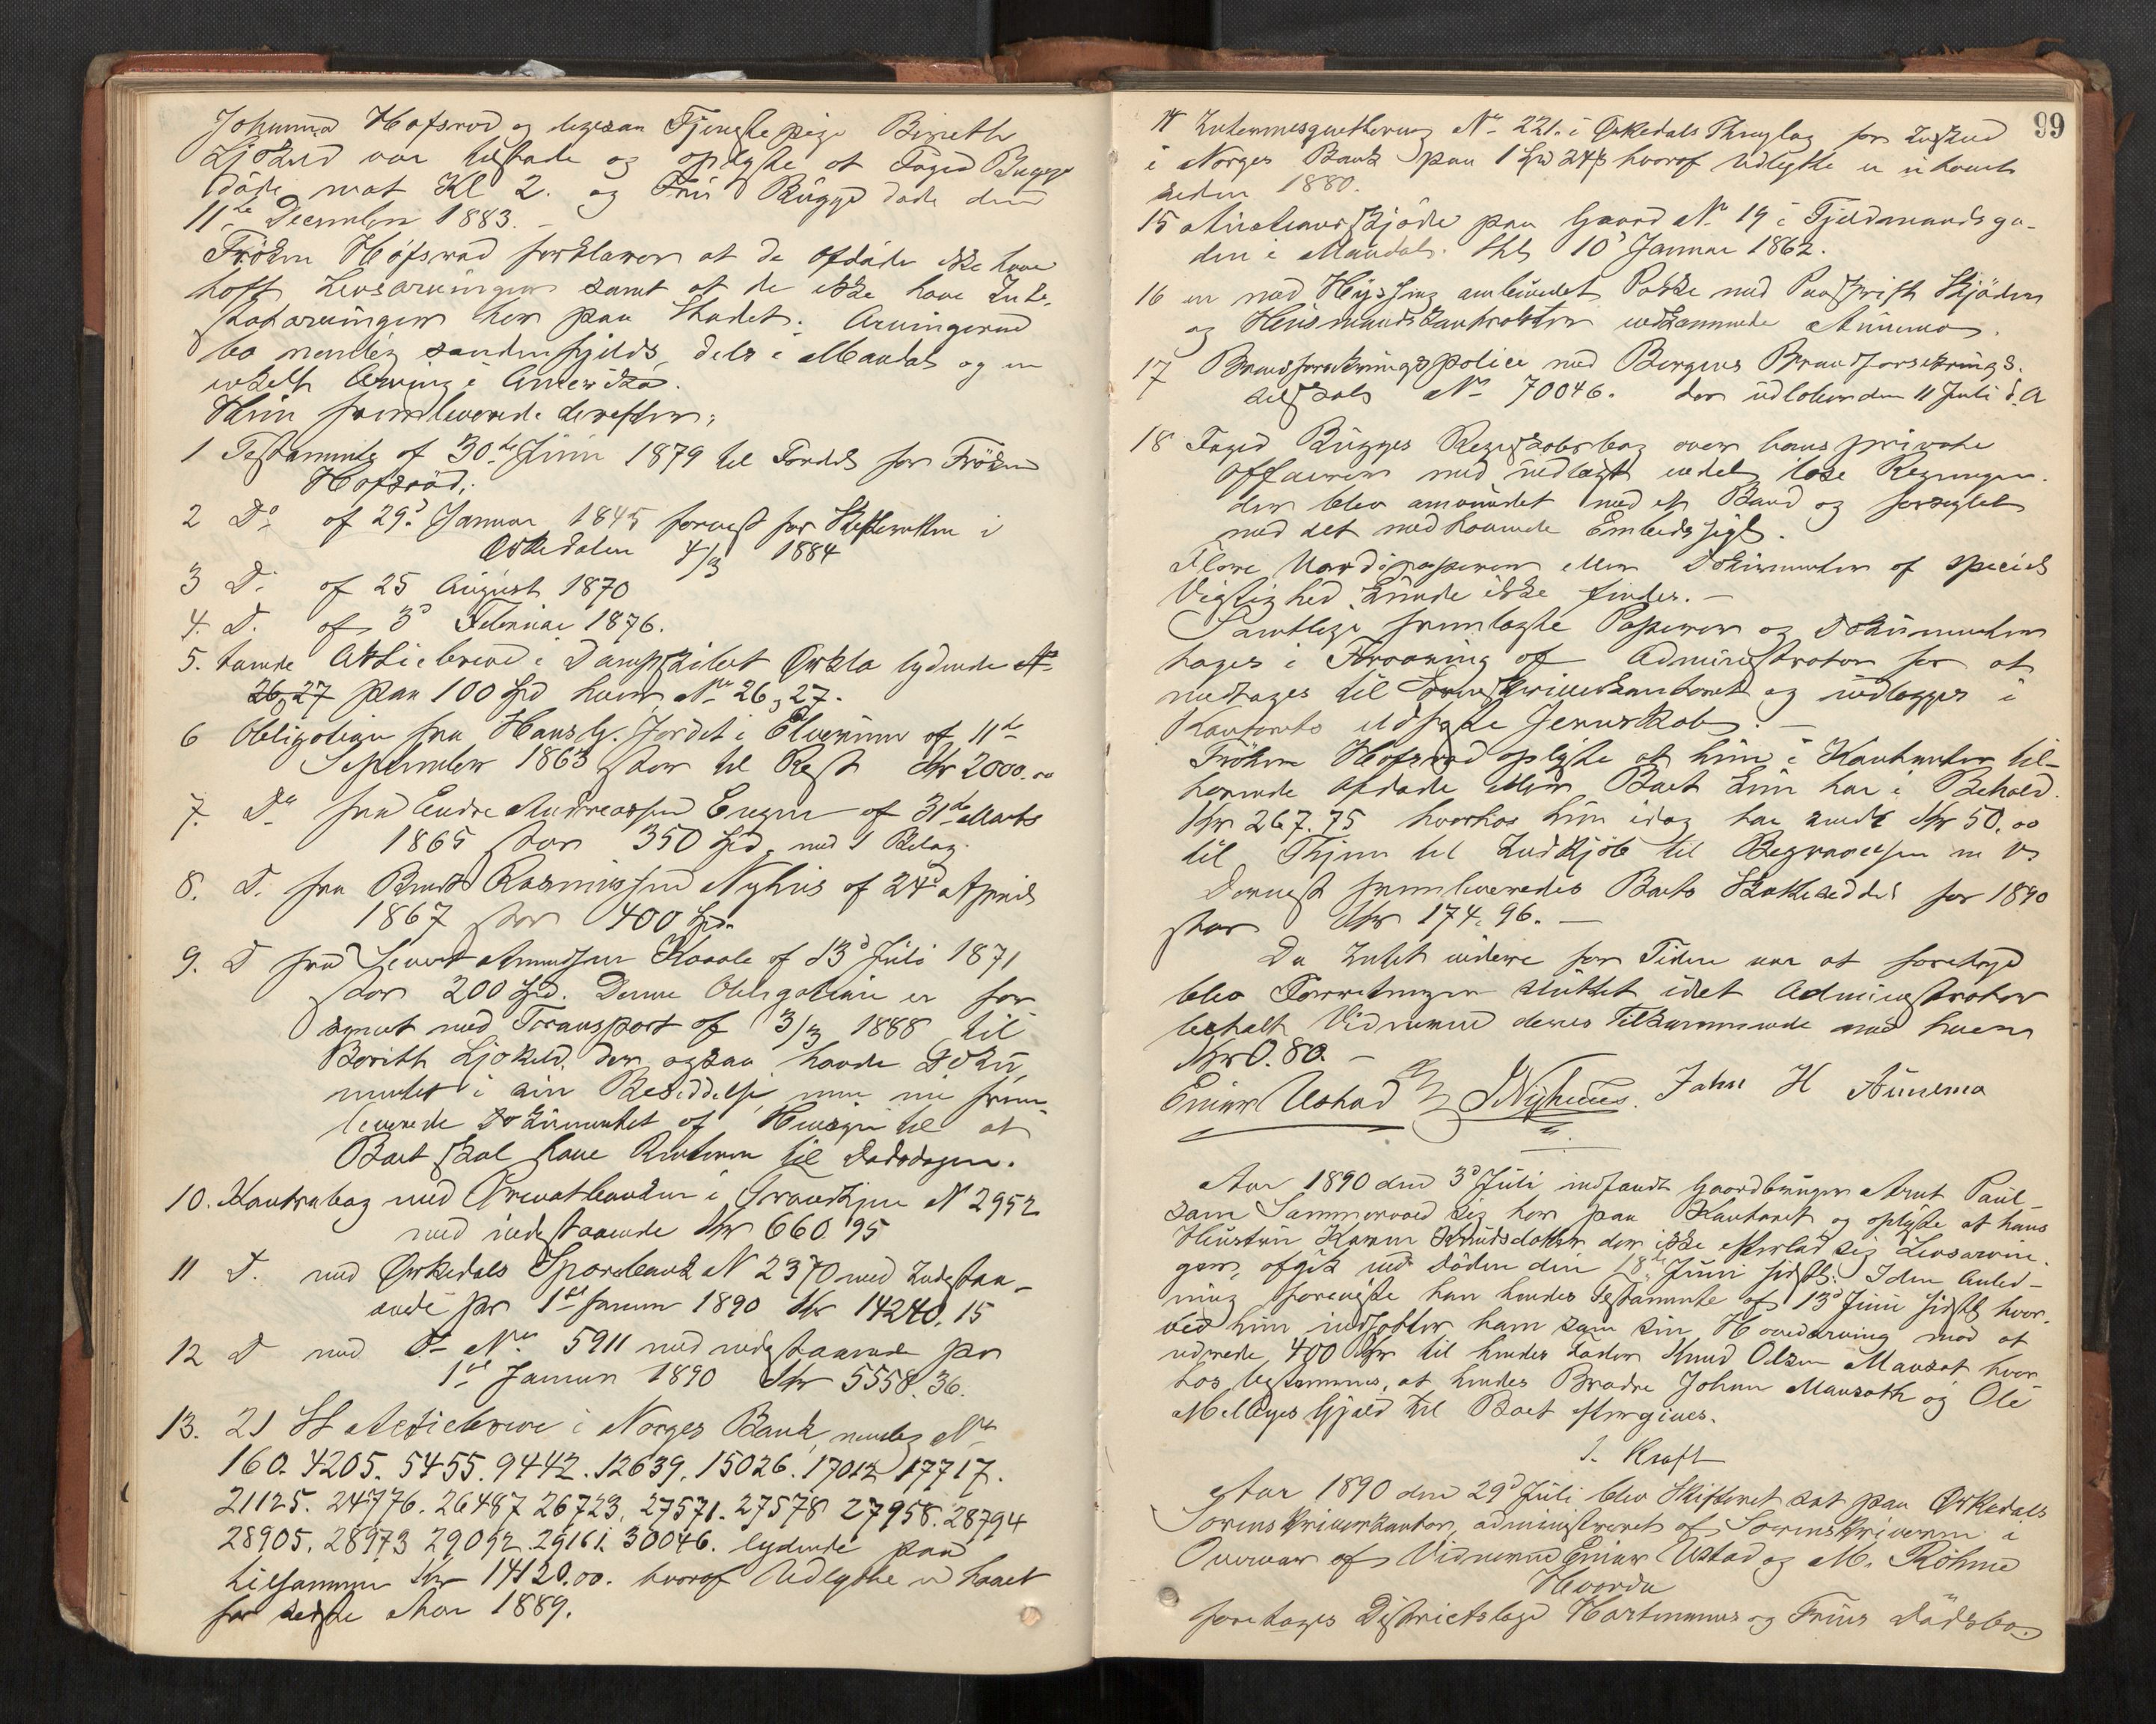 Johanna Hofsrød og ligesaa Tjenestepige Bereth
Ljøkeld var tilstede og oplyste at Foged Bugge
døde nat Kl 2. og Fru Bugge døde den
11te December 1883.
Frøken Hofsrød forklarer at de Afdøde ikke have
haft Livsarvinger samt at de ikke have Inte-
statarvinger her paa Stedet. Arvingerne
bo nemlig søndenfjelds, dels i Mandal og en
enkelt Arving i Amerika.
Hun fremleverede derefter:
1 Testamente af 30te Juni 1879 til Fordel for Frøken
Hofsrød;
2 Do af 29d Januar 1845 forevist for Skifteretten i
Orkedalen 4/3 1884
3 D. af 25 August 1870
4. D. af 3d Februar 1876.
5. tvende Actiebreve i Dampskibet Orkla lydende No
26, 27 paa 100 Spd hver, No 26, 27.
6 Obligation fra Hans G. Jordet i Elverum af 11te
September 1863 stor til Rest Kr 2000.00
7. Do fra Endre Andreassen Engen af 31te Marts
1865 stor 350 Spd. med 1 Bilag.
8. D. fra Berndt Rasmussen Nyhus af 24d April
1867 stor 400 Spd.
9. D fra Sivert Amundsen Kaale af 13d Juli 1871
stor 200 Spd. Denne Obligation er for
synet med Transport af 3/3 1888 til
Berith Ljøkeld. der ogsaa havde Doku
mentet i sin Besiddelse men nu frem-
leverede Dokumentet af Hensyn til at
Boet skal have Renterne til Dødsdagen.
10. Kontrabog med Privatbanken i Trondhjem N 2952
med indestaaende Kr 660.95
11 D. med Orkedals Sparebank N 2370 med Indestaa-
ende pr 1ste Januar 1890 Kr 14240.15
12 D med Do No 5911 med indestaaende pr
1ste Januar 1890 Kr 5558.36.
13. 21 St Actiebreve i Norges Bank, nemlig No
160. 4205. 5455. 9442. 12639. 15026. 17012 17717.
21125. 24776. 26487 26723. 27571. 27578 27958. 28794
28905. 28973 29092. 29161. 30046. lydende paa
tilsammen Kr 14120.00. hvoraf Udbytte er hævet
for sidste Aar 1889.
99
14 Indkomstqvittering No 221. i Orkedals Thinglag for Indskud
i Norges Bank paa 1 Spd 24 s hvoraf Udbytte er uhævet
siden 1880.
15 Auctionsskjøde paa Gaard No 19 i Fjeldmandsga-
den i Mandal. thl 10d Januar 1862.
16 en med Hyssing ombundet Pakke med Paaskrift Skjøder
og Husmandskontrakter vedkommende Aunemo.
17 Brandforsikringspolice med Bergens Brandforsikrings.
selskab No 70046. der udløber den 11 Juli d.A
18 Foged Bugges Regnskabsbog over hans private
Affairer med indlagt endel løse Regninger.
der blev ombundet med et Baand og forseglet
med det medhavende Embedssegl.
Flere Værdipapirer eller Dokumenter af speciel
Vigtighed kunde ikke findes. —
Samtlige fremlagte Papirer og Dokumenter
toges i Forvaring af Administrator for at
medtages til Sorenskriverkontoret og indlægges i
Kontorets ildfaste Jernskab. —
Frøken Hofsrød oplyste at hun i Kontanter til-
hørende Afdøde eller Boet kun har i Behold
Kr 267.75 hvorhos hun idag har sendt Kr 50.00
til Thjem til Indkjøb til Begravelsen m V.
Dernæst fremleveredes Boets Skatteseddel for 1890
stor Kr 174.96. —
Da Intet videre for Tiden var at foretage
blev Forretningen sluttet idet Administrator
betalte Vidnerne deres Tilkommende med hver
Kr 0.80. —
Einar Ustad JNyhuus. John H Aunemo
Aar 1890 den 3d Juli indfandt Gaardbruger Arnt Paul-
sen Sommervold sig her paa Kontoret og oplyste at hans
Hustru Karen Knudsdatter der ikke efterlod sig Livsarvin-
ger, afgik ved Døden den 18de Juni sidstl. I den Anled-
ning foreviste han hendes Testamente af 13d Juni sidstl. hvor-
ved hun indsætter ham som sin Hovedarving mod at
udrede 400 Kr til hendes Fader Knud Olsen Mansæt hvor
hos bestemmes, at hendes Brødre Johan Mansæth og Ole
Melbyes Gjæld til Boet eftergives.
J. Kraft
Aar 1890 den 29d Juli blev Skifteret sat paa Orkedals
Sorenskriverkontor, administreret af Sorenskriveren i
Overvær af Vidnerne Einar Ustad og M. Röhme
Hvorda
foretages Districtslæge Hartmanns og Frues Dødsbo.